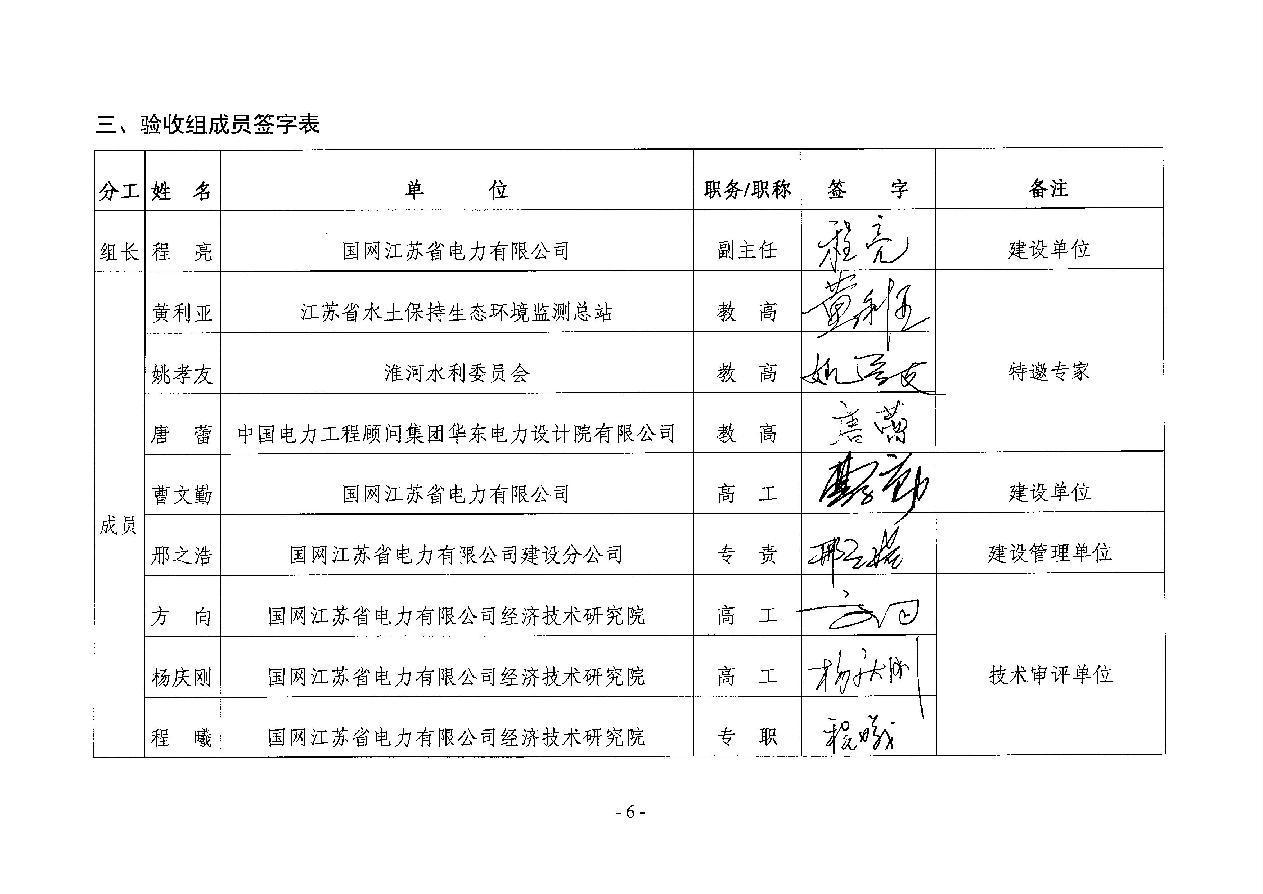 三、验收组成员签字表
分工 姓 名 单 位 职务/职称 签 字 备注
组长 程 亮 国网江苏省电力有限公司 副主任 程亮 建设单位
黄利亚 江苏省水土保持生态环境监测总站 教 高 黄利亚
姚孝友 淮河水利委员会 教 高 姚孝友 特邀专家
唐 蕾 中国电力工程顾问集团华东电力设计院有限公司 教 高 唐蕾
曹文勤 国网江苏省电力有限公司 高 工 曹文勤 建设单位
成员
邢之浩 国网江苏省电力有限公司建设分公司 专 责 邢之浩 建设管理单位
方 向 国网江苏省电力有限公司经济技术研究院 高 工 方向
杨庆刚 国网江苏省电力有限公司经济技术研究院 高 工 杨庆刚 技术审评单位
程 曦 国网江苏省电力有限公司经济技术研究院 专 职 程曦
- 6 -